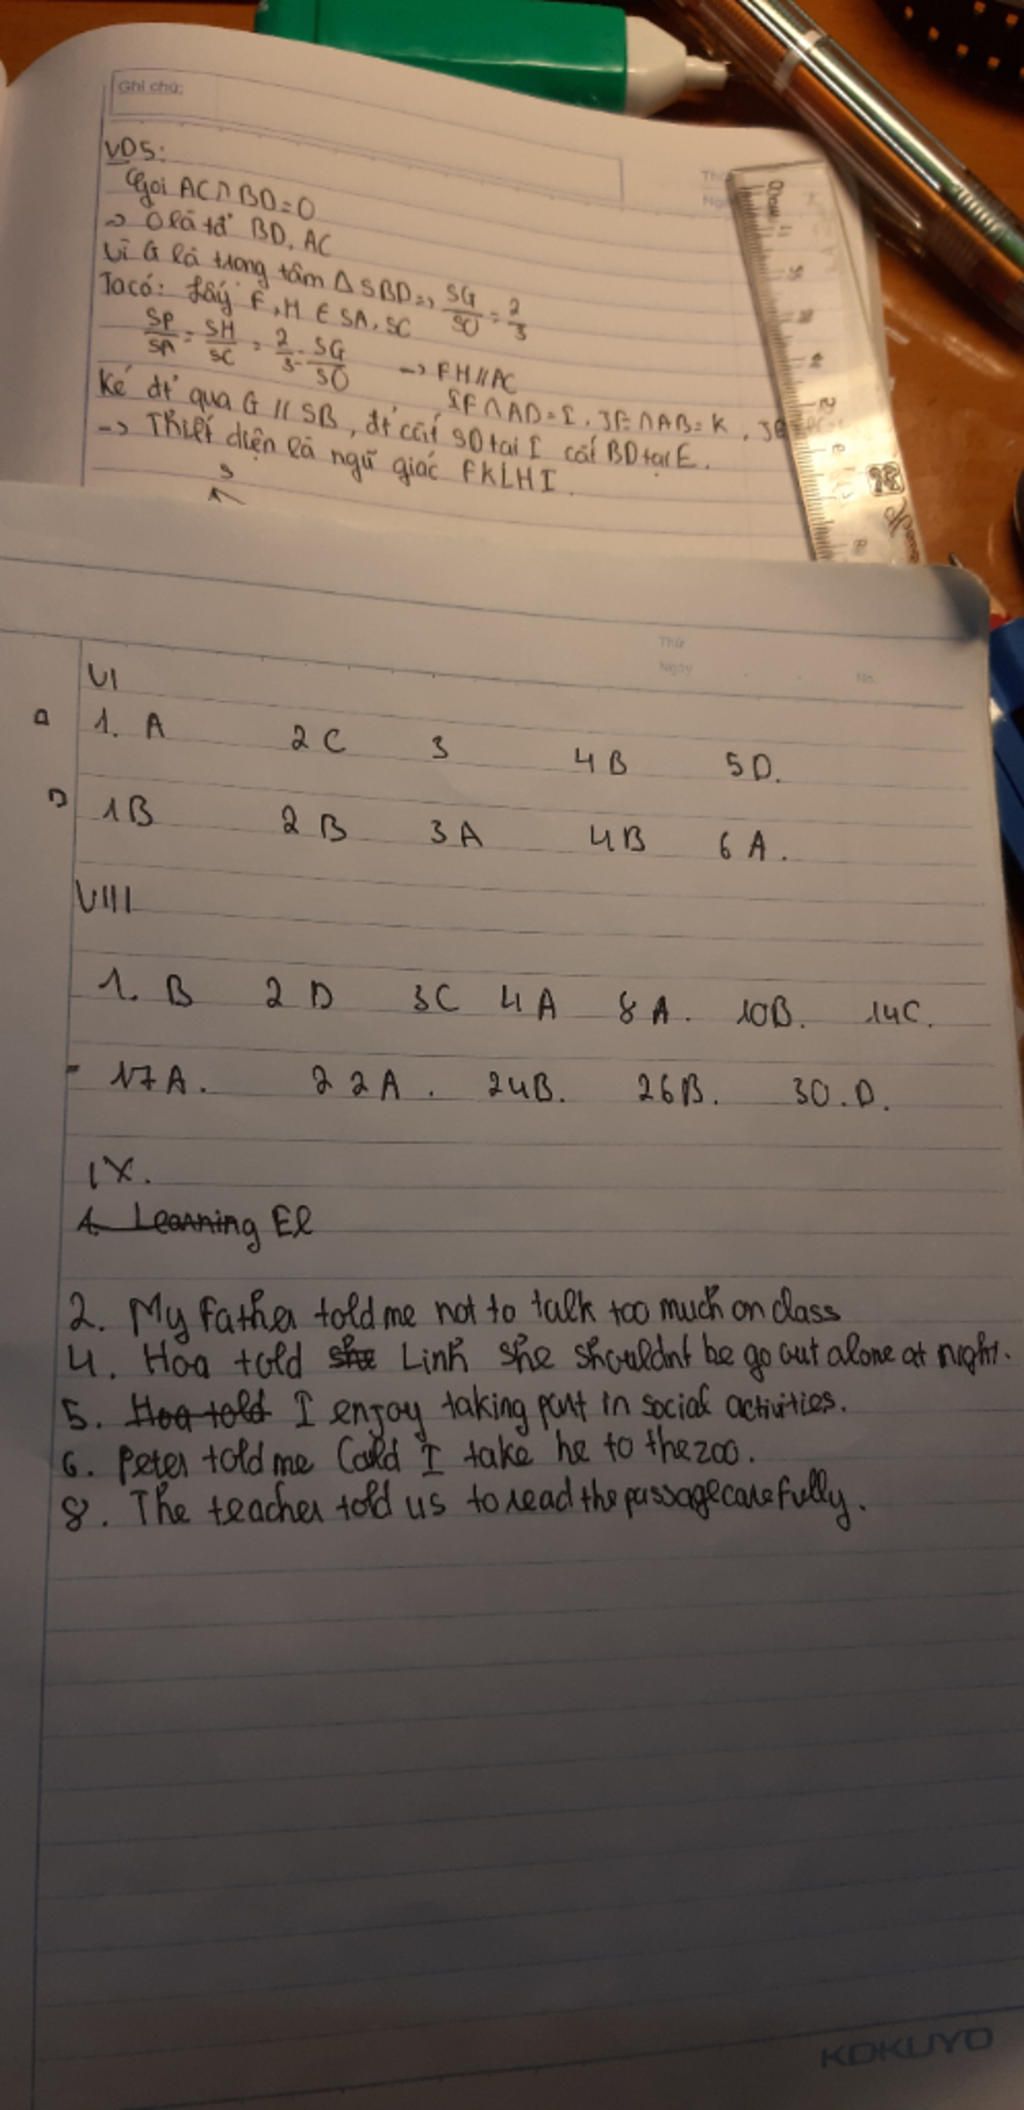 Ghi chú:
VD5:
Gọi AC∩BD=O
→ O là tđ BD, AC
Vì G là trọng tâm ΔSBD => SG/SO = 2/3
Ta có: Lấy F, H ∈ SA, SC
SF/SA = SH/SC = 2/3 = SG/SO → FH//AC
Kẻ đt qua G // SB, đt cắt SD tại I cắt BD tại E.
IF∩AD=I, JE∩AB=K,
→ Thiết diện là ngũ giác FKLHI.
S
Thứ
Ngày
No.
VI
a 1. A 2 C 3 4 B 5 D.
b 1 B 2 B 3 A 4 B 6 A.
VIII
1. B 2 D 3C 4 A 8 A. 10B. 14C.
- 17A. 22A. 24B. 26B. 30.D.
IX.
1. Learning El
2. My father told me not to talk too much on class
4. Hoa told she Linh she shouldnt be go out alone at night.
5. Hoa told I enjoy taking part in social activities.
6. Peter told me Could I take he to the zoo.
8. The teacher told us to read the passage carefully.
KOKUYO